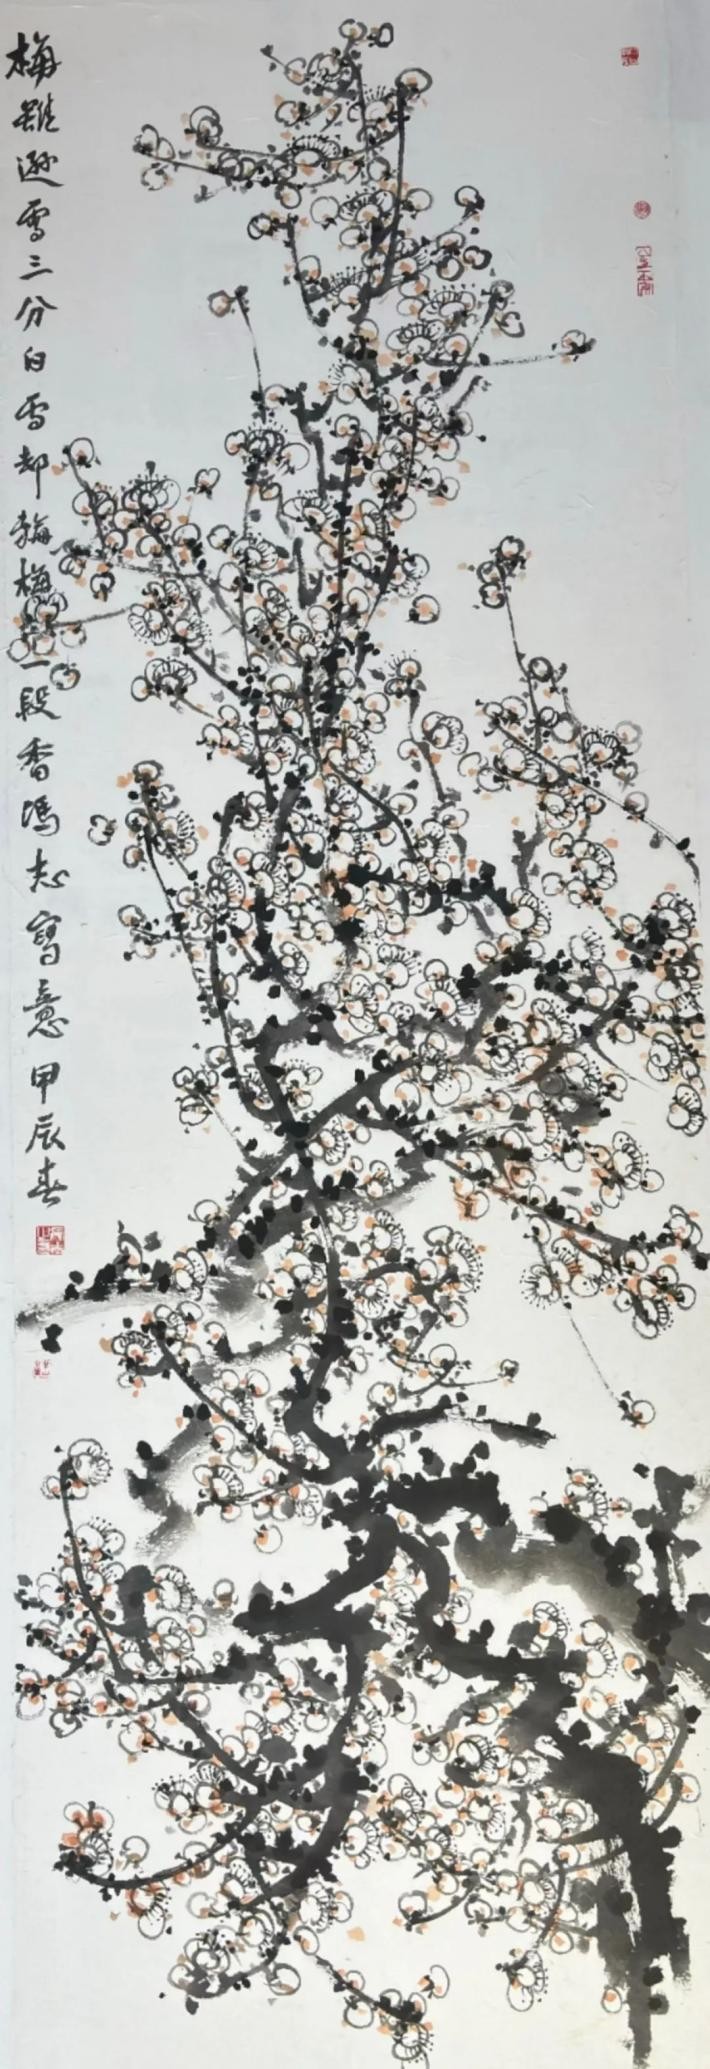 梅雖遜雪三分白雪却輸梅一段香馮志寫意甲辰春